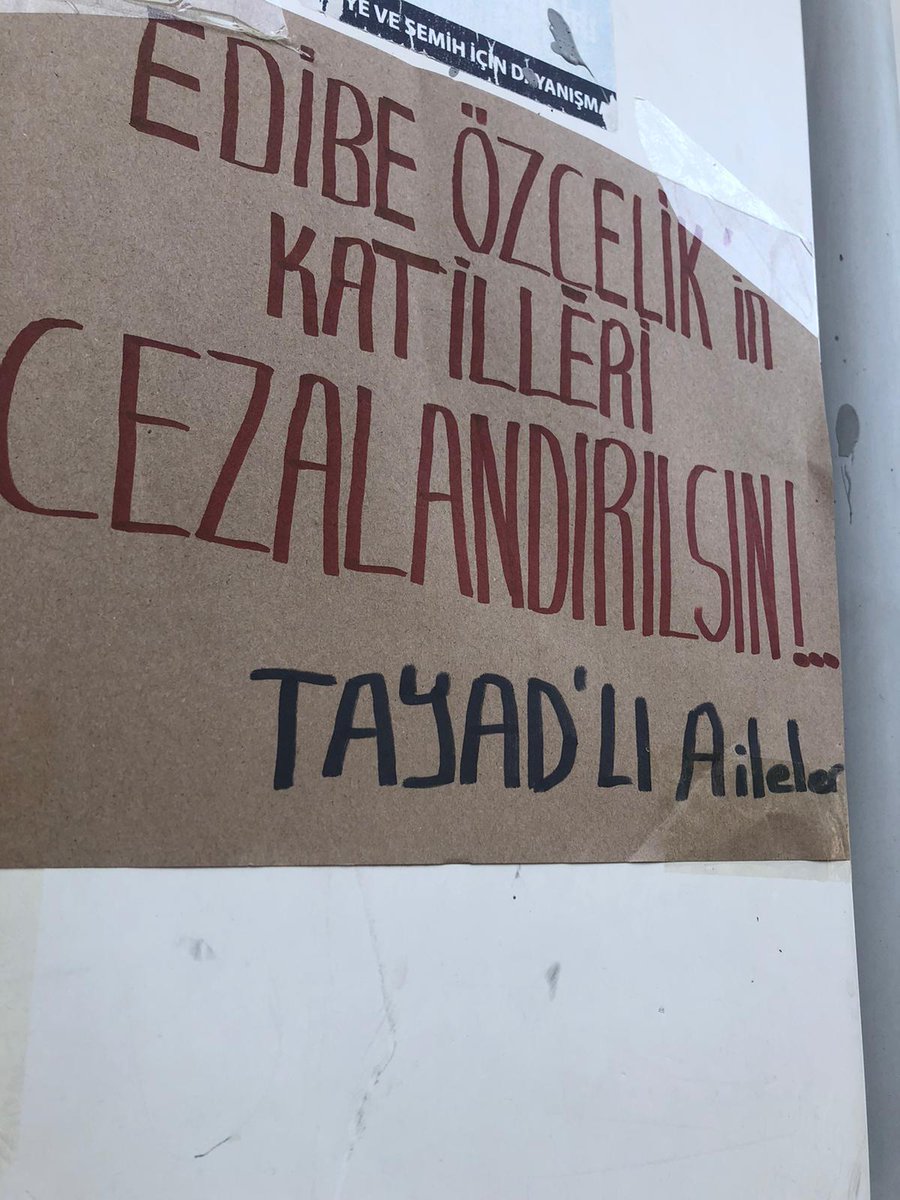 YE VE SEMİH İÇİN DAYANIŞMA
EDİBE ÖZÇELİK'in
KATİLLERİ
CEZALANDIRILSIN!...
TAYAD'LI Aileler